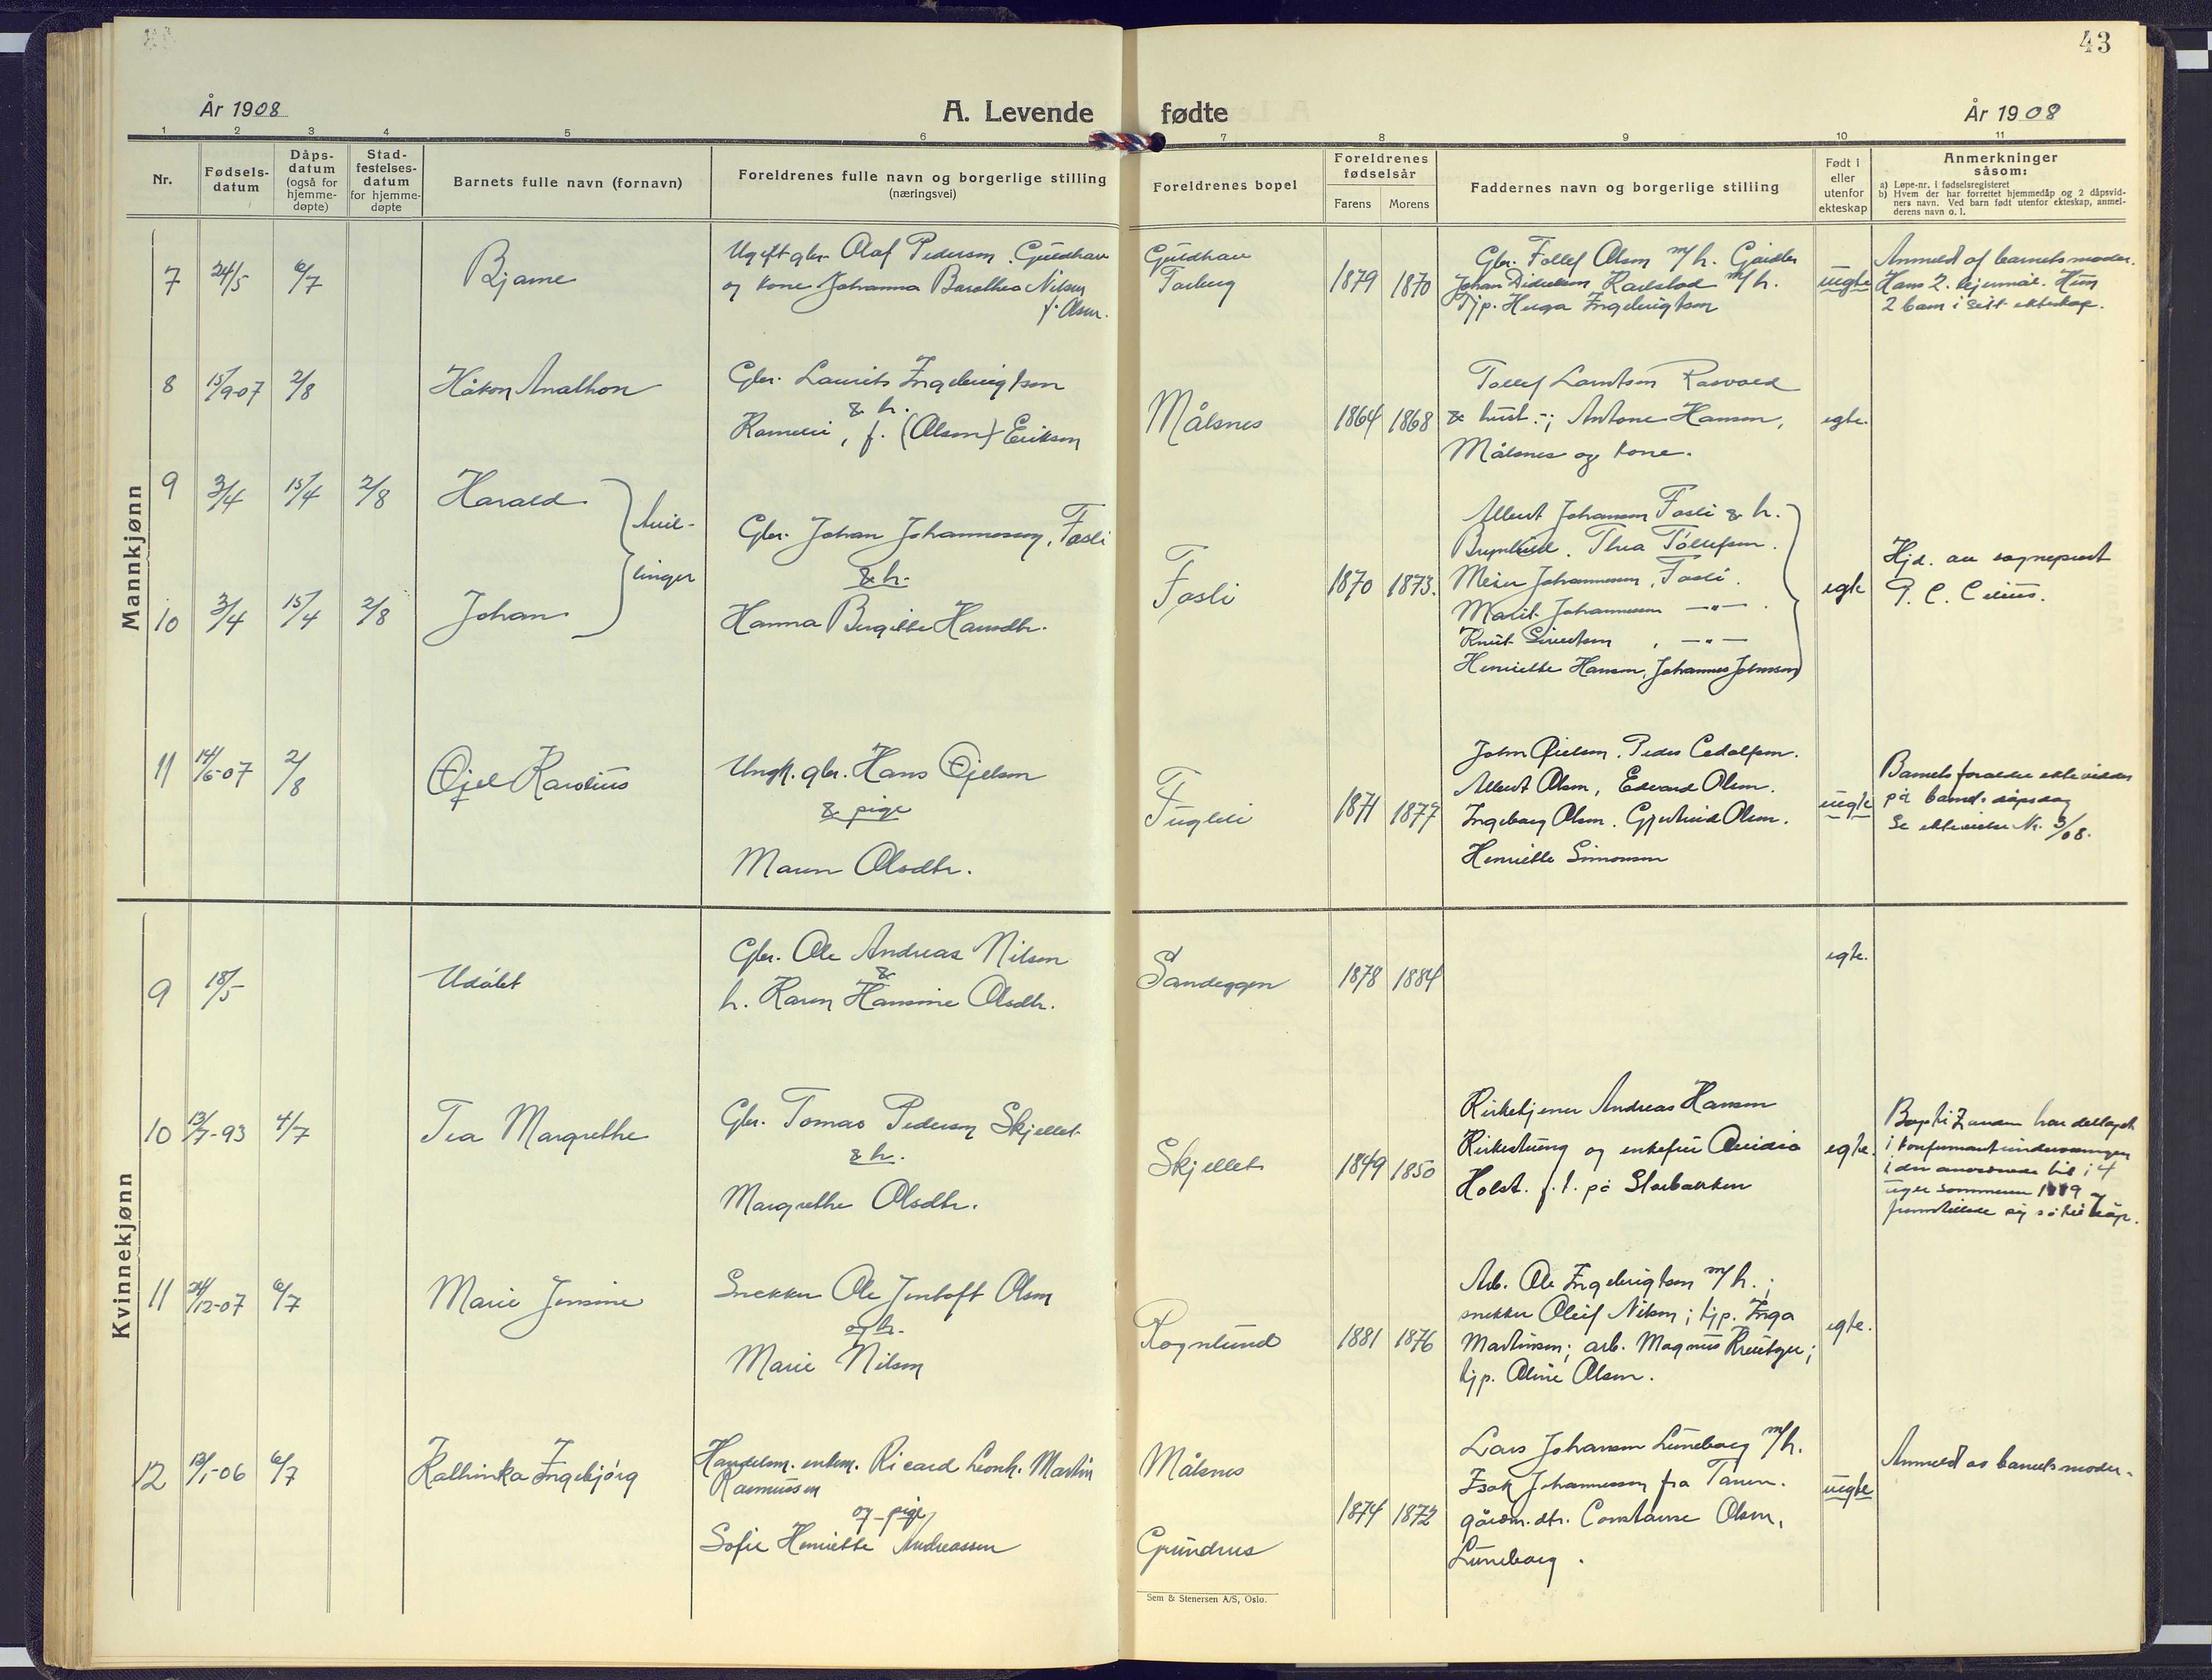 43
År 1908
A. Levende fødte
År 1908
1 2 3 4 5 6 7 8 9 10 11
Nr.
Fødsels-
datum
Dåps-
datum
(også for
hjemme-
døpte)
Stad-
festelses-
datum
for hjemme-
døpte
Barnets fulle navn (fornavn)
Foreldrenes fulle navn og borgerlige stilling
(næringsvei)
Foreldrenes bopel
Foreldrenes
fødselsår
Farens Morens
Faddernes navn og borgerlige stilling
Født i
eller
utenfor
ekteskap
Anmerkninger
såsom:
a) Løpe-nr. i fødselsregisteret
b) Hvem der har forrettet hjemmedåp og 2 dåpsvid-
ners navn. Ved barn født utenfor ekteskap, anmel-
derens navn o. l.
Mannkjønn
7 24/5 6/7 Bjarne
Ugift gbr. Olaf Pederson, Guldhav
og kone Johanna Barolhea Nilsen
f. Olsen.
Guldhav
1879 1870
Gbr. Tollef Olsen m/h.
m/h.
tjp. Inga Ingebrigtsen
uegte
Anmeldt af barnets moder.
Hans 2. lejermål. Hun
2 barn i sitt ekteskap.
8 15/9-07 2/8 Håkon Anathon
Gbr. Laurits Ingebrigtsen
& h.
f. (Olsen) Eriksen
Målsnes
1864 1868
Tollef
& hust.; Antone Hansen,
Målsnes og kone.
egte.
9 3/4 15/4 2/8 Harald
10 3/4 15/4 2/8 Johan
tvil-
linger
Gbr. Johan Johannessen, Fosli
& h.
Hanna Birgitte Hansdtr.
Fosli
1870 1873.
Albert Johansen Fosli & h.
Brynhild. Thea Tollefsen.
Meier Johannessen, Fosli.
Marit Johannessen —"—.
Knut Sivertsen, —"—
Henriette Hansen, Johannes Johnsen
egte
Hjd. av sogneprest
P. C. Cilius.
11 14/6-07 2/8 Øjel Karolius
Ungk. gbr. Hans Øjelsen
& pige
Maren Olsdtr.
Fuglli
1871 1877
John Øielsen. Peder Cedolfsen.
Albert Olsen, Edvard Olsen.
Ingeborg Olsen. Gjertrud Olsen.
Henriette Simonsen
uegte
Barnets foreldre ekteviedes
på barnets dåpsdag
Se ektevielse Nr. 3/08.
Kvinnekjønn
9 18/5 Udøbt
Gbr. Ole Andreas Nilsen
&
h. Karen Hansine Olsdtr.
Sandeggen
1878 1884
egte.
10 13/7-93 4/7 Tea Margrethe
Gbr. Tomas Pedersen Skjellet
& h.
Margrethe Olsdtr.
Skjellet
1849 1850
Kirketjener Andreas Hansen
Kirkestuen og enkefru Ovidia
Holst. f. t. på Storbakken
egte.
har deltaget
i konfirmantundervisningen
i den anordnede tid i 4
uger sommeren og
fremstillede sig så til dåp.
11 24/12-07 6/7 Marie Jensine
Snekker Ole Jentoft Olsen
og h.
Marie Nilsen
Rognlund
1881 1876
Arb. Ole Ingebrigtsen m/h.;
snekker Oluf Nilsen; tjp. Inga
Martinsen; arb. Magnus Kreutzer;
tjp. Oline Olsen.
egte.
12 13/1-06 6/7 Kathinka Ingebjørg
Handelsm. enkem. Ricard Leonh. Martin
Rasmussen
og pige
Sofie Henriette Andreassen
Målsnes
Grundnes
1874 1872
Lars Johansen Luneborg m/h.
Isak Johannessen fra Tanen.
gårdm. dtr. Constanse Olsen,
Luneborg.
uegte
Anmeldt av barnets moder.
Sem & Stenersen A/S, Oslo.